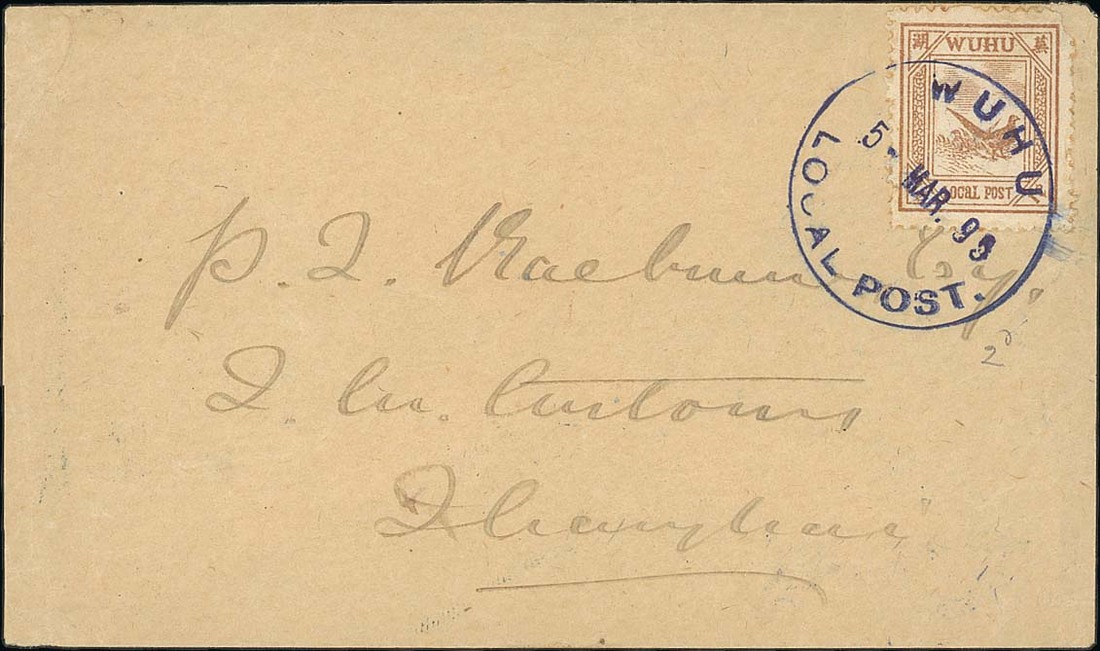 湖 WUHU 蕪
LOCAL POST
WUHU
5 - MAR. 95
LOCAL POST.
P. 2. Raeburn Esq.
I. M. Customs
Shanghai
2d